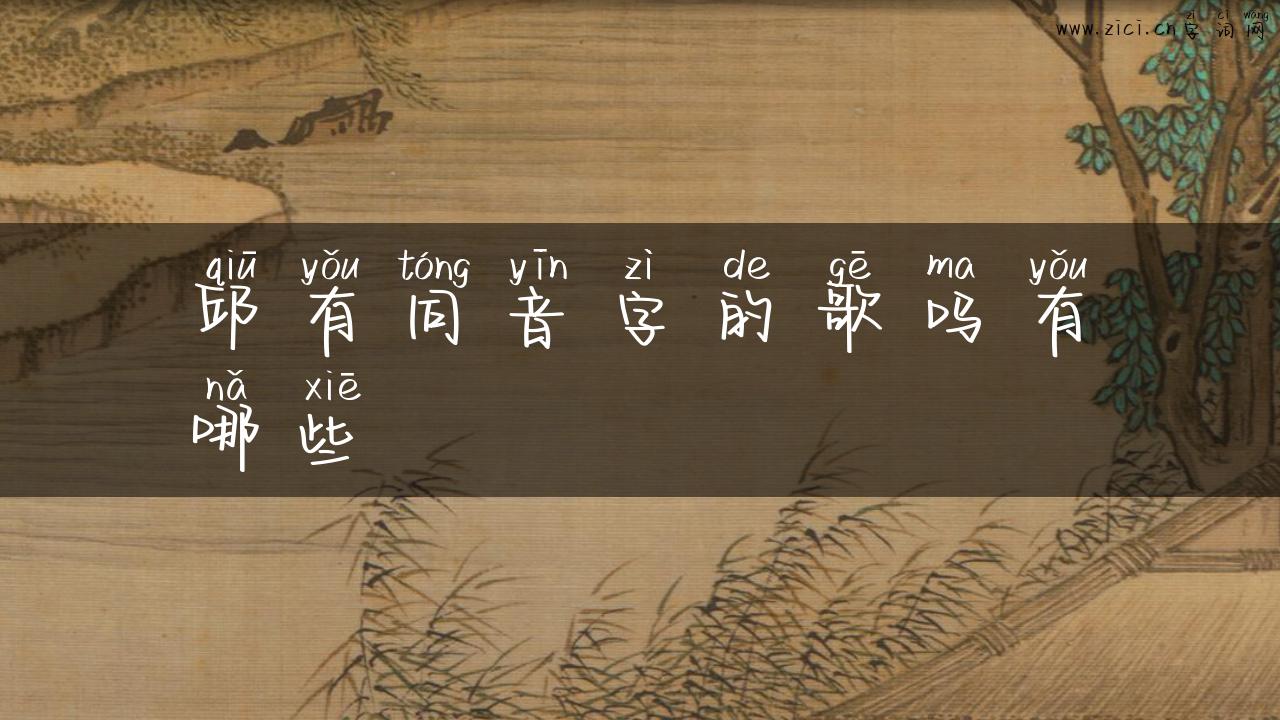 zì cí wǎng
www.zici.cn字词网
qiū yǒu tóng yīn zì de gē ma yǒu
邱有同音字的歌吗有
nǎ xiē
哪些